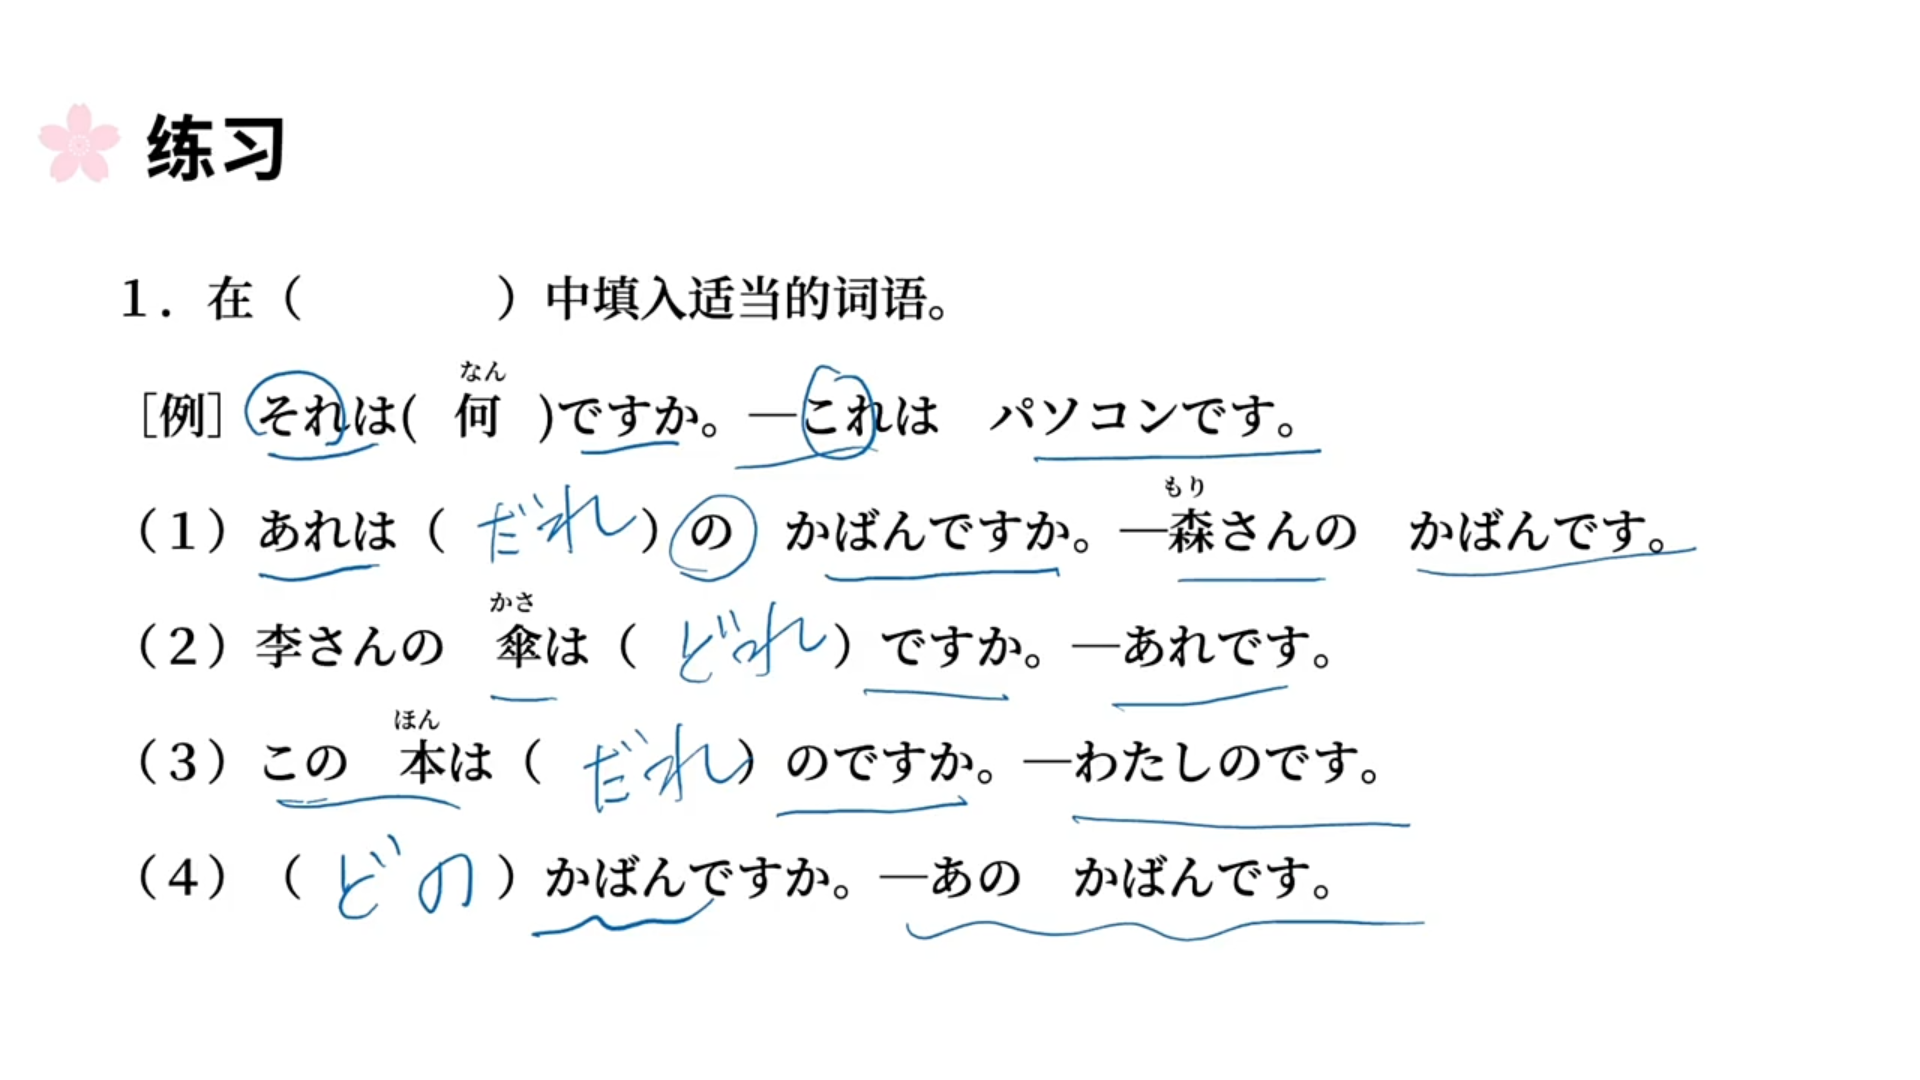 练习
1．在（　　　　）中填入适当的词语。
なん
［例］それは(　何　)ですか。—これは　パソコンです。
もり
（1）あれは（　だれ　）の　かばんですか。—森さんの　かばんです。
かさ
（2）李さんの　傘は（　どれ　）ですか。—あれです。
ほん
（3）この　本は（　だれ　）のですか。—わたしのです。
（4）（　どの　）かばんですか。—あの　かばんです。